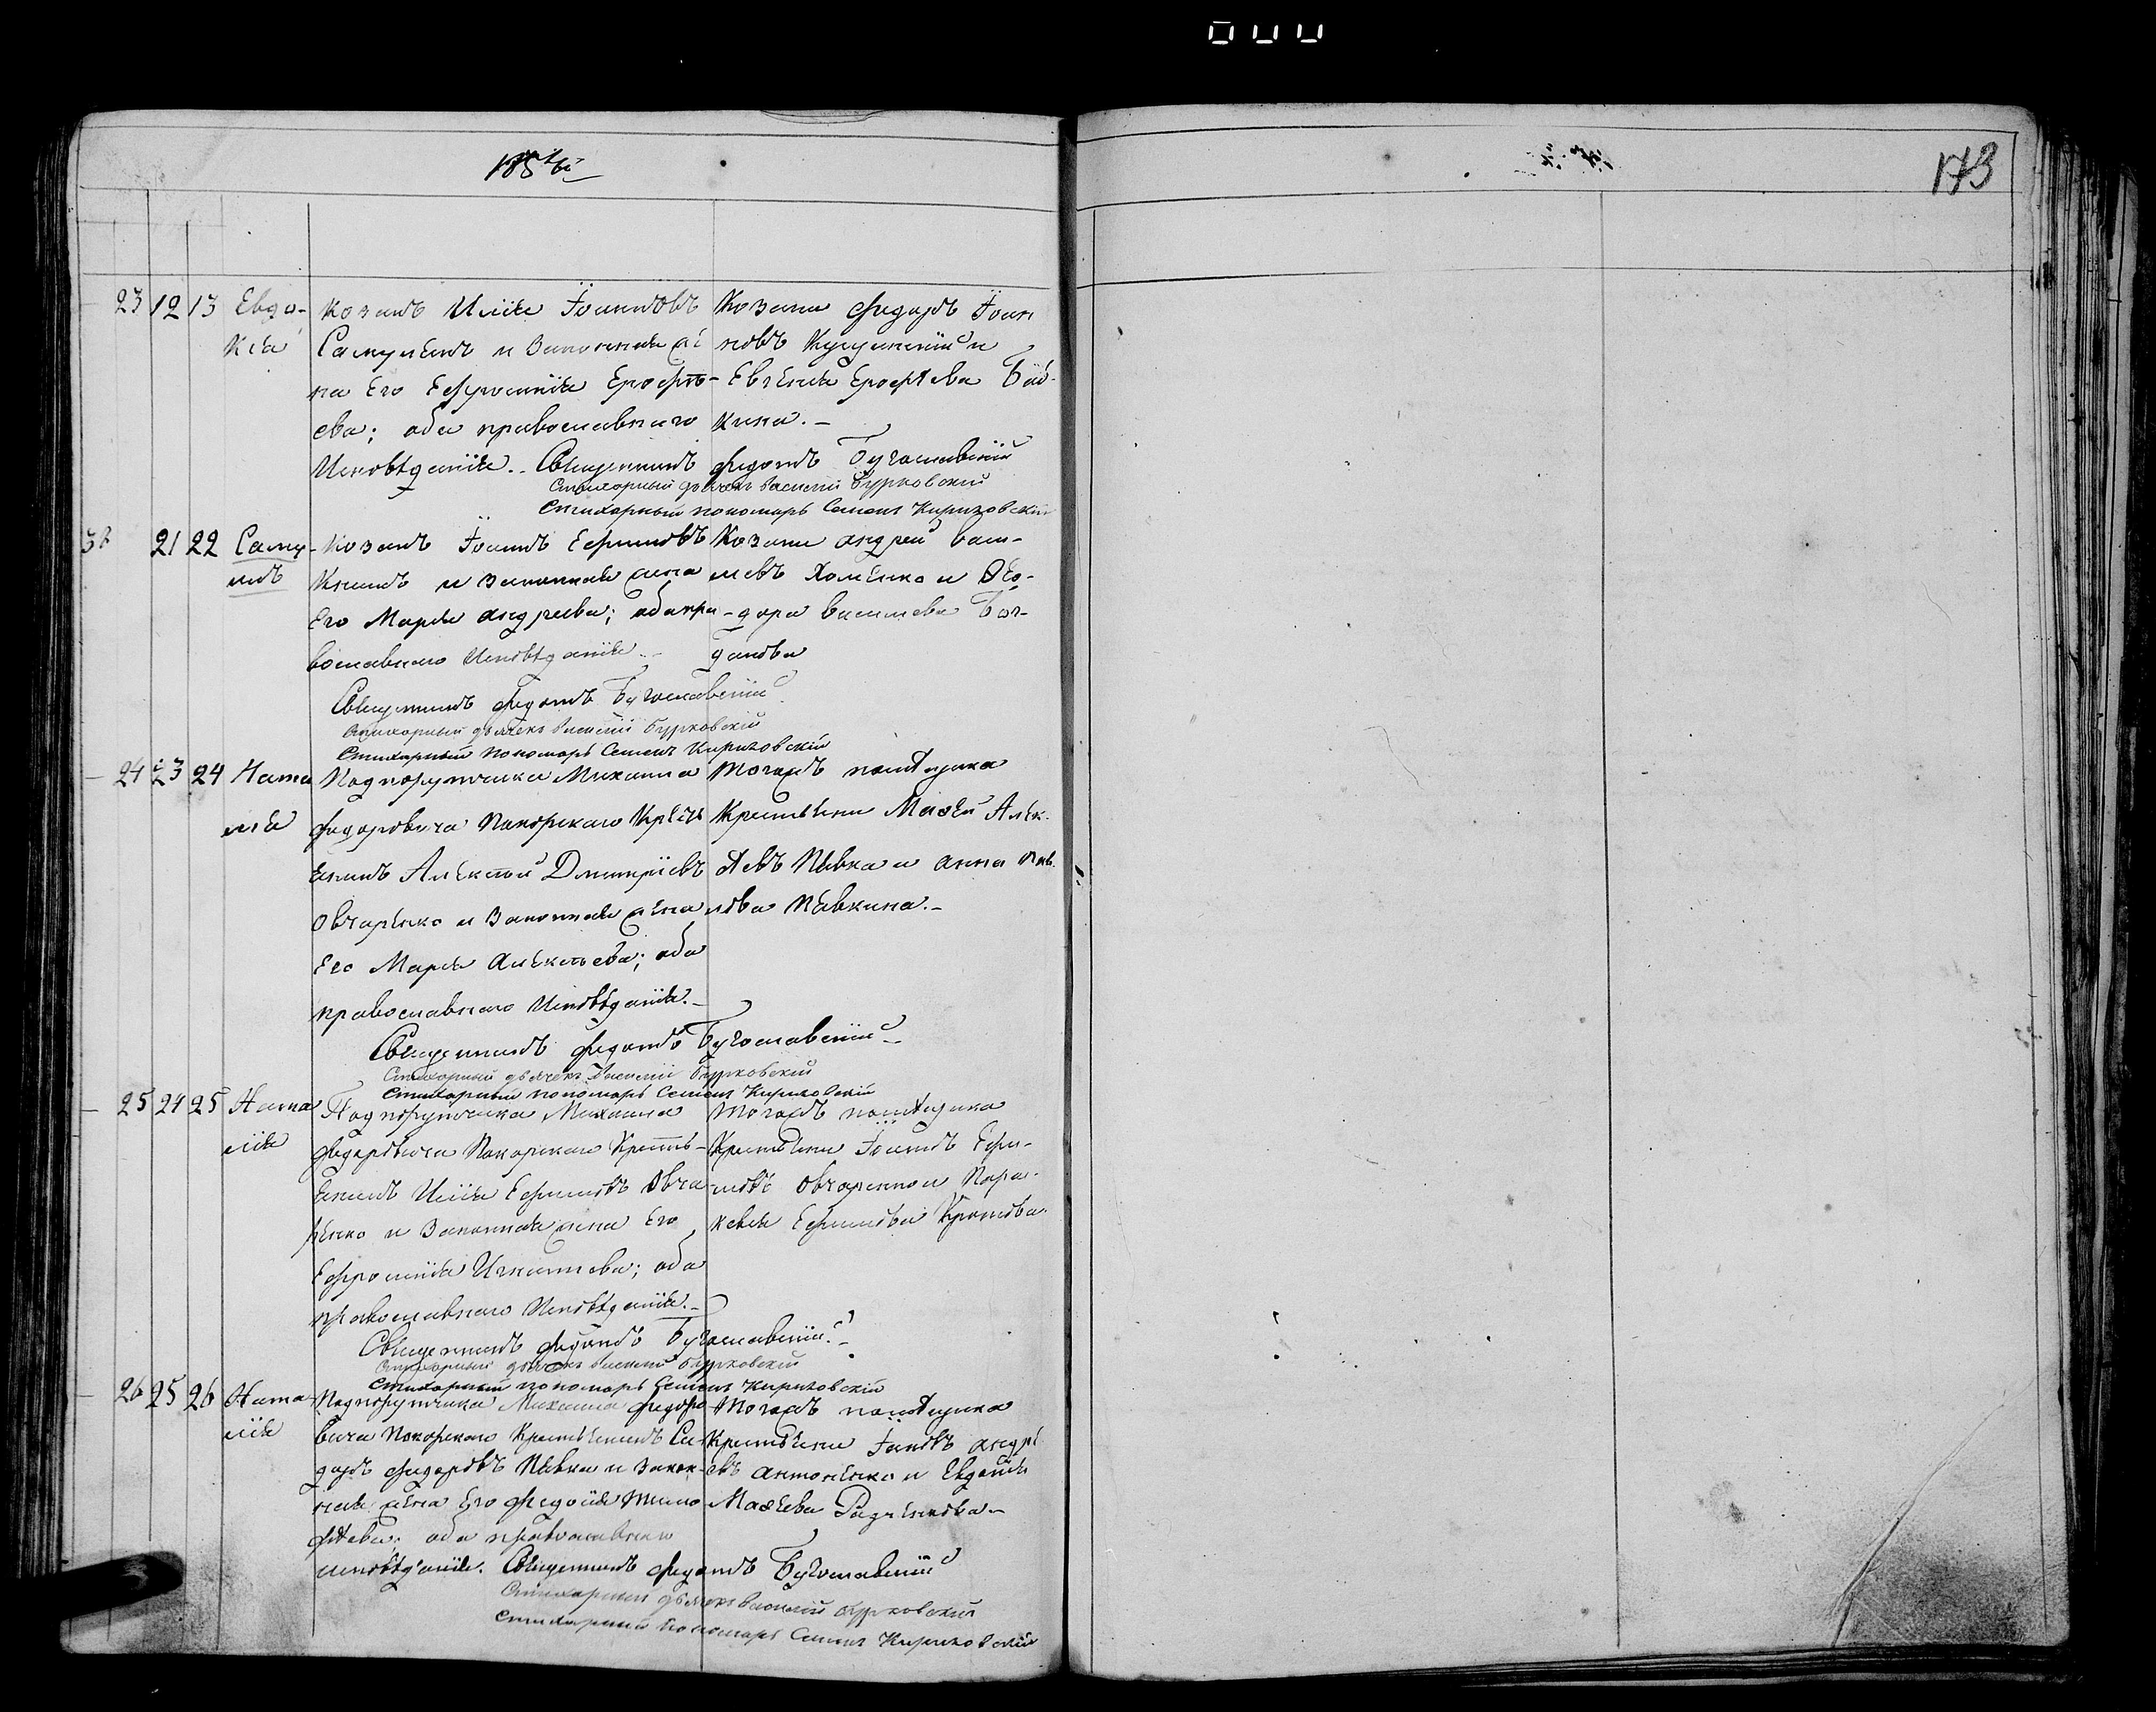 173
23 12 13 Евдо-
кіа
Козакъ Иліа Іоанновъ
и законная же-
на Его Ефросиніа Ерофѣ-
ева; оба православнаго
Исповѣданіа. Священникъ Федотъ Бугославскій
Козаки Федоръ Іоан
новъ и
Евгеніа Ерофѣева
кина.
Стихарный дьячекъ Василій Бурковскій
Стихарный пономарь Семенъ Кириковскій
21 22 Саму-
илъ
Козакъ Іоаннъ Ефимовъ
и законная жена
Его Маріа Андреева; оба пра-
вославнаго Исповѣданіа
Козаки Андрей Васи-
левъ Хоменко и Ѳео-
дора Василева Бог-
данова
Священникъ Федотъ Бугославскій
Стихарный дьячекъ Василій Бурковскій
Стихарный пономарь Семенъ Кириковскій
24 23 24 Ната
ліа
Подпорутчика Михаила
Федоровича Покорскаго Крестя
енинъ Алексѣй Дмитріевъ
Овчаренко и законная жена
Его Маріа Алексѣева; оба
православнаго Исповѣданіа.
Тогожъ помѣщика
Крестьяни Маѳей Алек-
ѣевъ Пѣвка и Анна Пав-
лова Пѣвкина.
Священникъ Федотъ Бугославскій
Стихарный дьячекъ Василій Бурковскій
Стихарный пономарь Семенъ Кириковскій
25 24 25 Ната
ліа
Подпорутчика Михаила
Федоровича Покорскаго Кресть-
енинъ Иліа Ефимовъ Овча-
ренко и законная жена Его
Ефросиніа Игнатіева; оба
православнаго Исповѣданіа.
Тогожъ помѣщика
Крестьяни Іоаннъ Ефи-
мовъ Овчаренко и Пара-
скевіа Ефимова
Священникъ Федотъ Бугославскій.
Стихарный дьячекъ Василій Бурковскій
Стихарный пономарь Семенъ Кириковскій
26 25 26 Ната
ліа
Подпорутчика Михаила Федоро
вича Покорскаго Крестьенинъ Си
доръ Федоровъ Пѣвка и закон-
ная жена Его Федосіа Тимо
фѣева; оба православнаго
исповѣданіа. Священникъ Федотъ Бугославскій
Тогожъ помѣщика
Крестьяни Іаковъ Андре
евъ Антоненко и Евдокіа
Маѳеева Радченкова
Стихарный дьячекъ Василій Бурковскій
Стихарный пономарь Семенъ Кириковскій